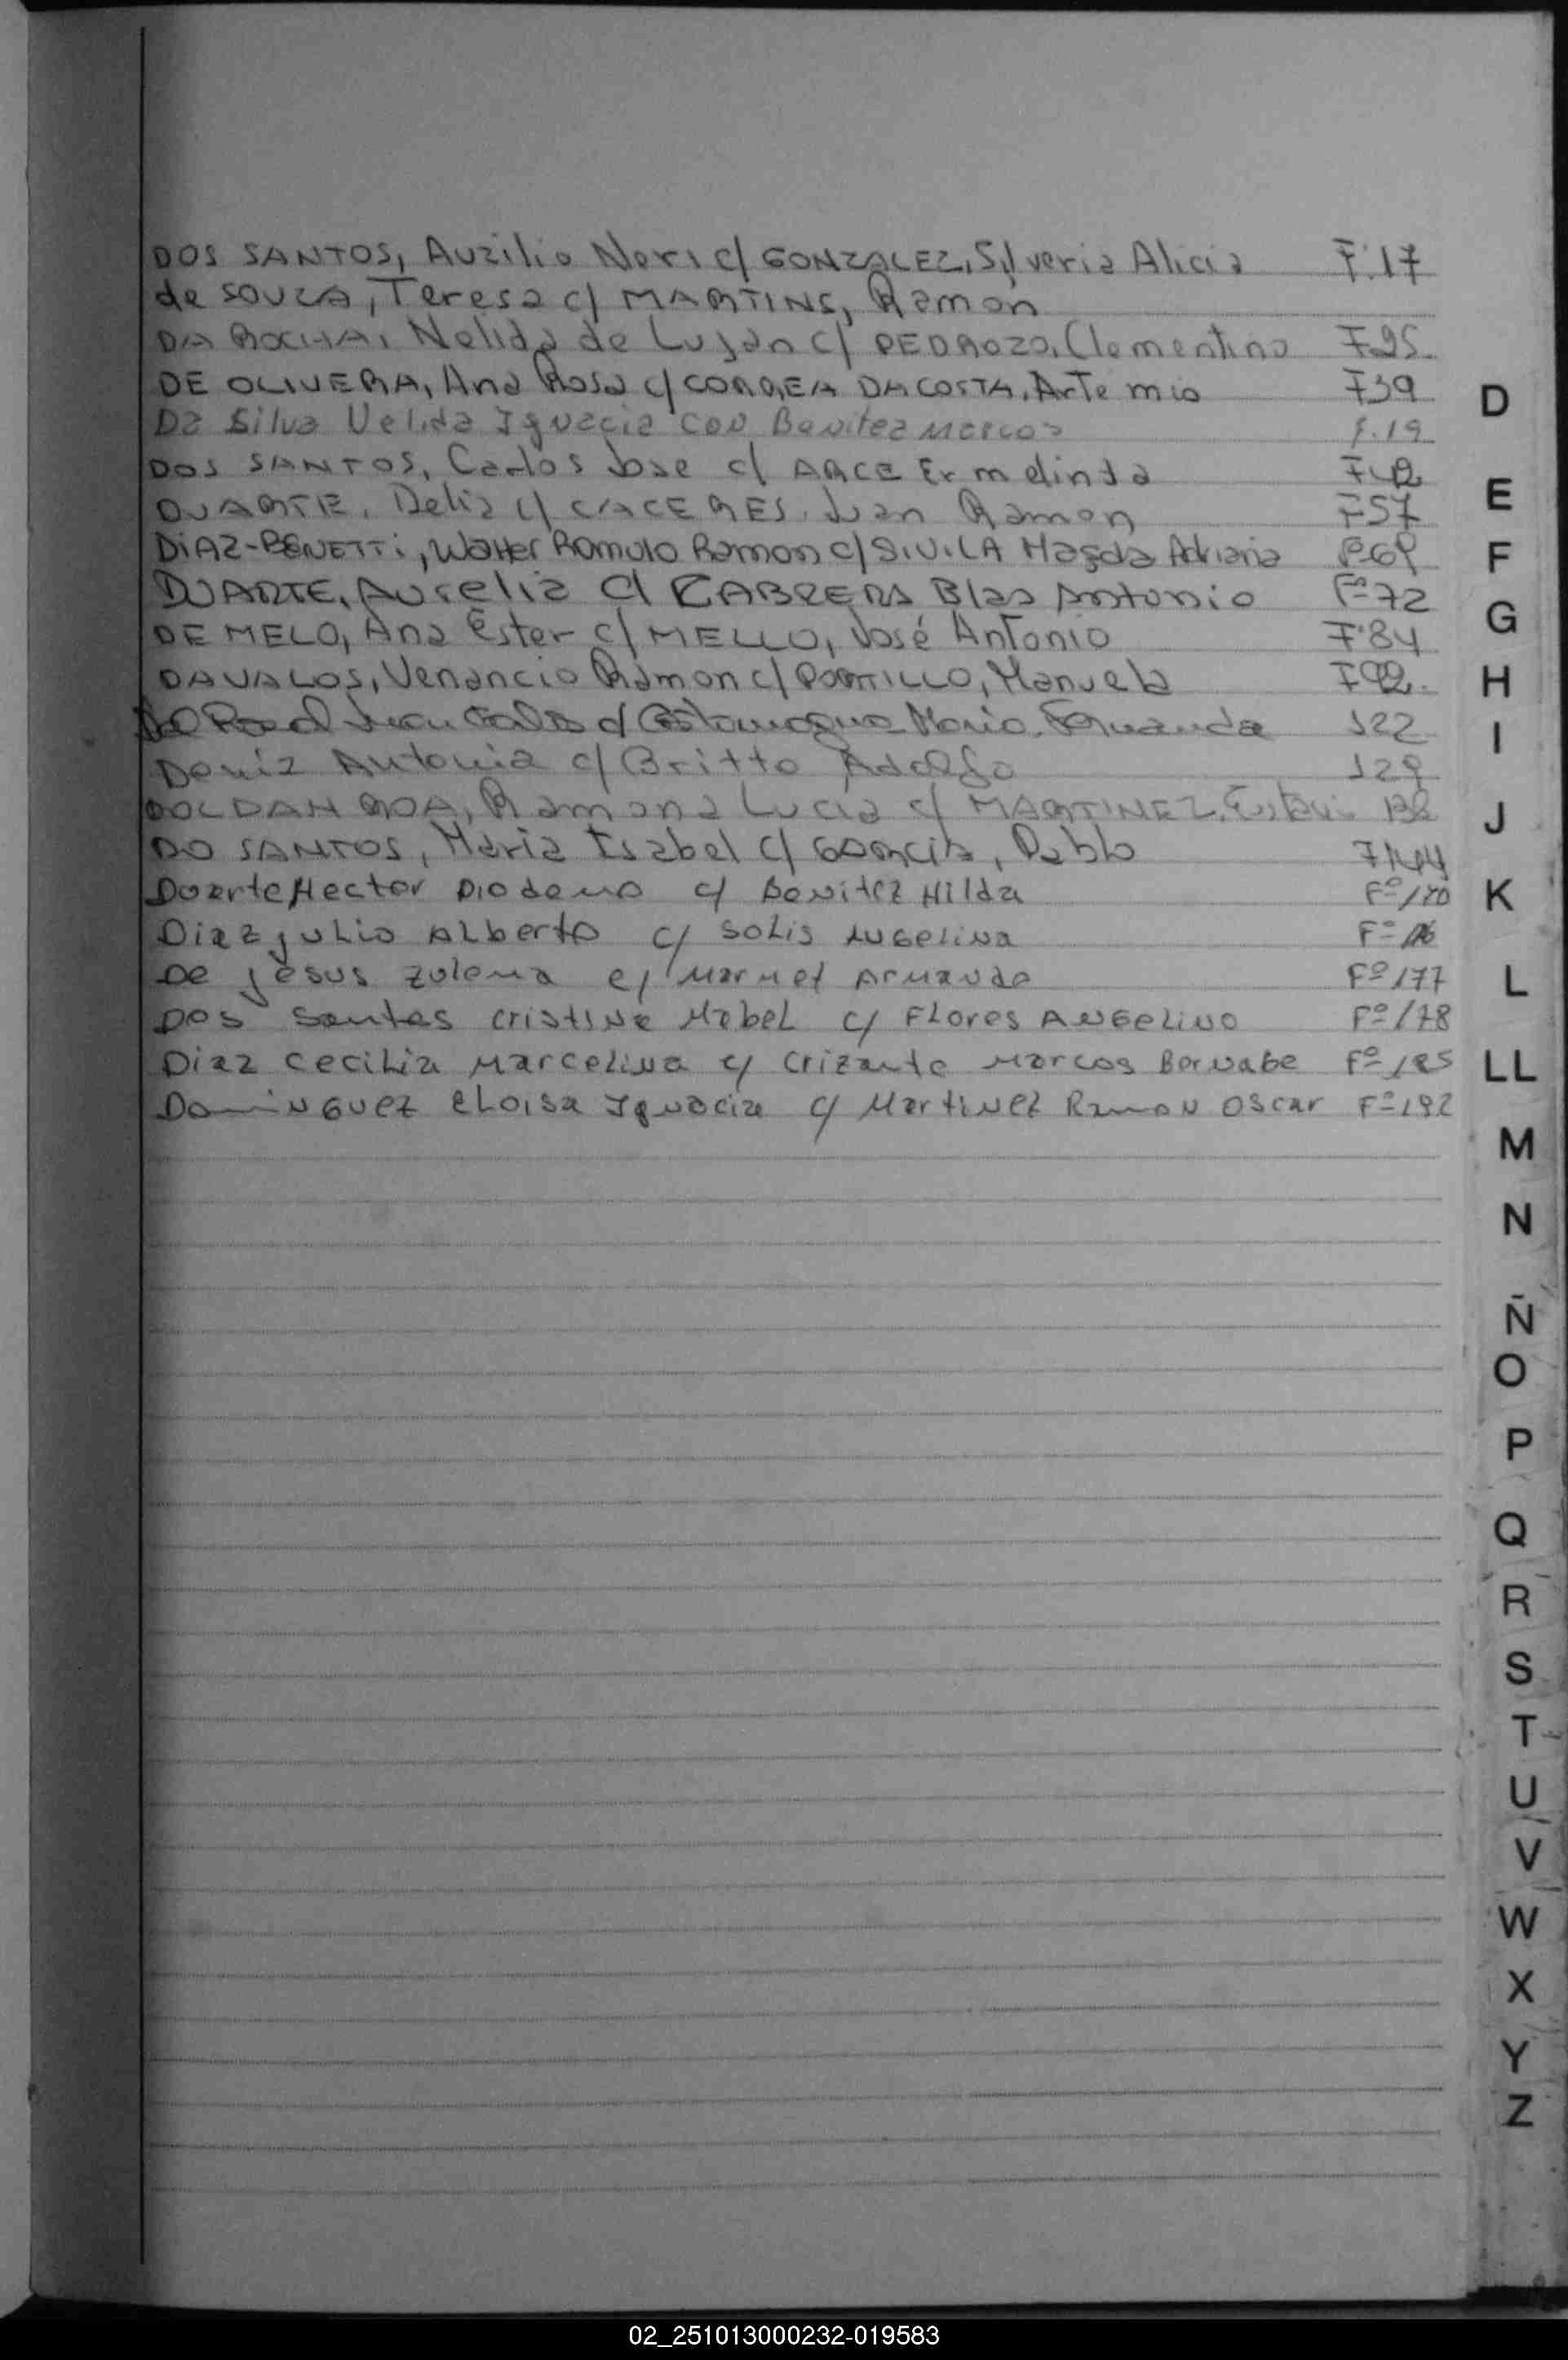 DOS SANTOS, Auzilio Neri c/ GONZALEZ, Silveria Alicia F.17
de SOUZA, Teresa c/ MARTINS, Ramón
DA ROCHA, Nelida de Lujan c/ PEDROZO, Clementino F25
DE OLIVERA, Ana Rosa c/ CORREA DA COSTA, Artemio F39
Da Silva Velida Ignacia con Benitez Marcos F.19
DOS SANTOS, Carlos Jose c/ ARCE Ermelinda
DUARTE, Delia c/ CACERES, Juan Ramon F57
DIAZ-BENETTI, Walter Romulo Ramon c/ SIVILA Magda Adriana
DUARTE, Aurelia c/ CABRERA Blas Antonio Fº72
DE MELO, Ana Ester c/ MELLO, José Antonio F.84
DAVALOS, Venancio Ramon c/ PORTILLO, Manuela F92
Juan Carlos c/ Maria Fernanda 122
Deniz Antonia c/ Britto Adolfo 129
ROLDAN ROA, Ramona Lucia c/ MARTINEZ,
DO SANTOS, Maria Isabel c/ GARCIA, Pablo F144
Duarte Hector Diodemo c/ Benitez Hilda Fº170
Diaz Julio Alberto c/ Solis Angelina
De Jesus Zulema c/ Marnet Armando Fº177
Dos Santos Cristina Mabel c/ Flores Angelino Fº178
Diaz Cecilia Marcelina c/ Crizante Marcos Bernabe Fº185
Dominguez Eloisa Ignacia c/ Martinez Ramon Oscar Fº192
D
E
F
G
H
I
J
K
L
LL
M
N
Ñ
O
P
Q
R
S
T
U
V
W
X
Y
Z
02_251013000232-019583